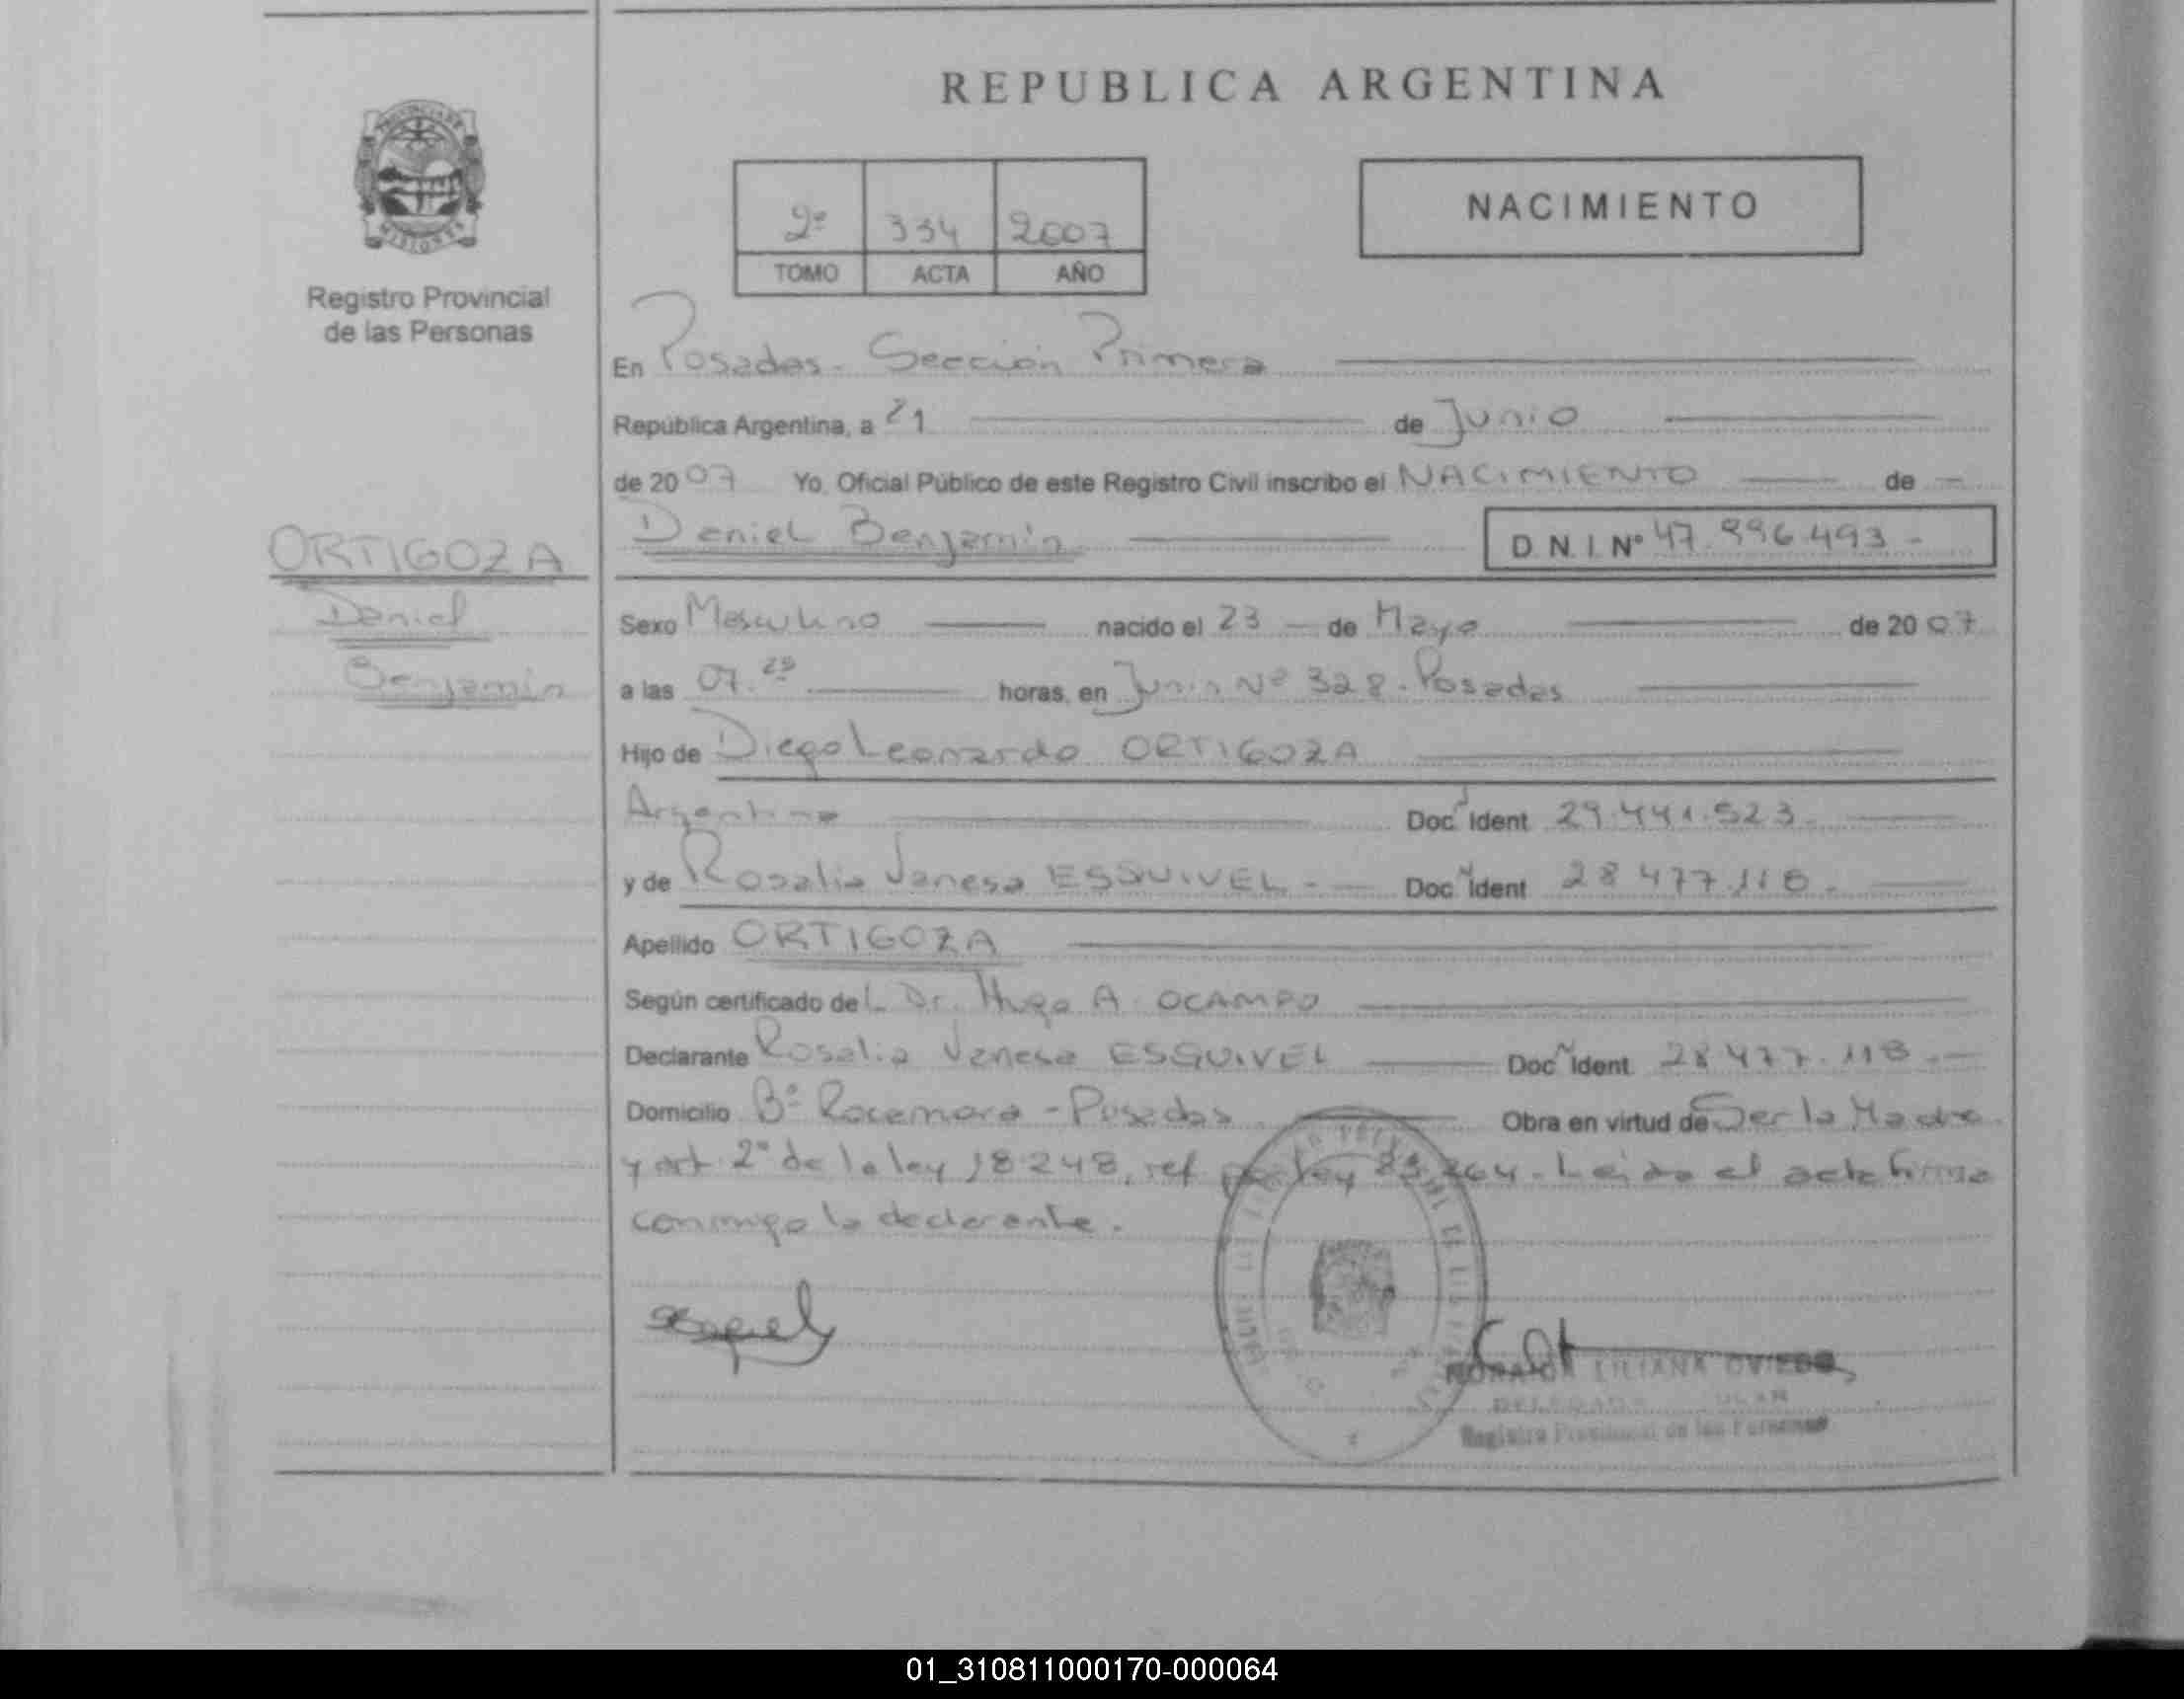 REPUBLICA ARGENTINA
PROVINCIA DE
MISIONES
Registro Provincial
de las Personas
2º 334 2007
TOMO ACTA AÑO
NACIMIENTO
En Posadas - Sección Primera
República Argentina, a 21 de Junio
de 2007 Yo, Oficial Público de este Registro Civil inscribo el NACIMIENTO de
Daniel Benjamín D.N.I. Nº 47.996.493 -
ORTIGOZA
Daniel
Benjamín
Sexo Masculino nacido el 23 de Mayo de 2007
a las 07.25 horas, en Junín Nº 328 - Posadas
Hijo de Diego Leonardo ORTIGOZA
Argentino Doc. Ident 29.441.523 -
y de Rosalia Vanesa ESQUIVEL - Doc. Ident 28 477.118 -
Apellido ORTIGOZA
Según certificado del Dr. Hugo A. OCAMPO
Declarante Rosalia Vanesa ESQUIVEL Doc. Ident. 28 477.118 -
Domicilio Bº Rocamora - Posadas Obra en virtud de Ser la Madre
y art 2º de la ley 18.248, ref por ley 23.264 - Leída el acta firma
conmigo la declarante.
LILIANA OVIEDO
Registro Provincial de las Personas
01_310811000170-000064